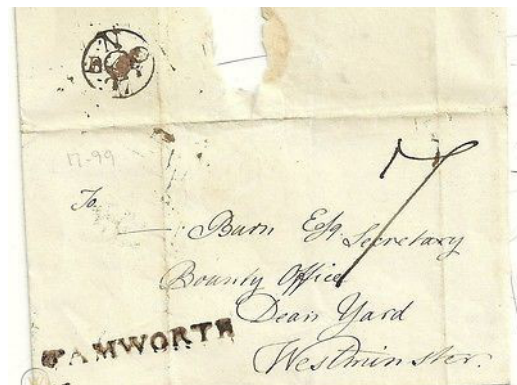 N
17-99
7
To
Burn Esqr. Secretary
Bounty Office
Dean Yard
Westminster.
TAMWORTH